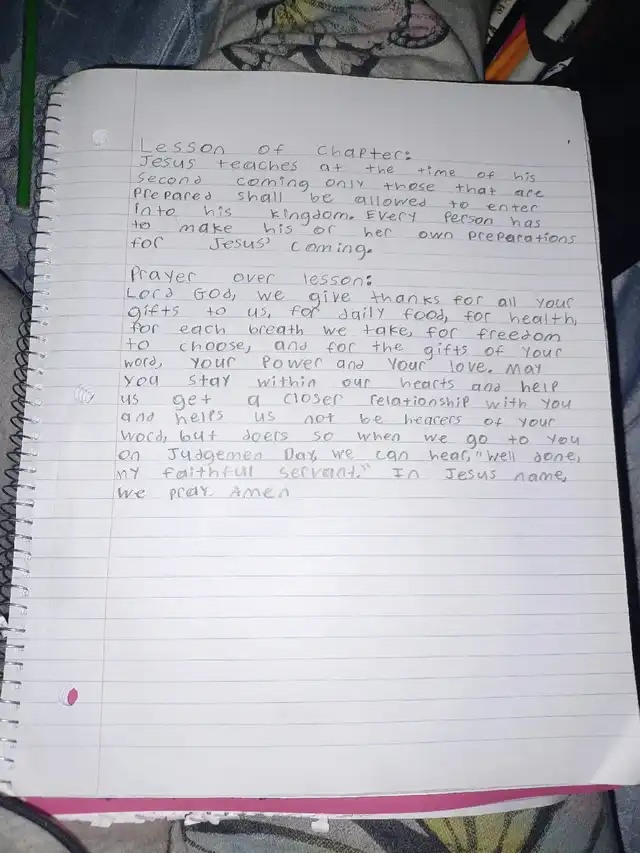 Lesson of Chapter:
Jesus teaches at the time of his
second coming only those that are
prepared shall be allowed to enter
into his kingdom. Every person has
to make his or her own preparations
for Jesus' coming.
Prayer over lesson:
Lord God, we give thanks for all your
gifts to us, for daily food, for health,
for each breath we take, for freedom
to choose, and for the gifts of your
word, your power and your love. May
you stay within our hearts and help
us get a closer relationship with you
and helps us not be hearers of your
word, but doers so when we go to you
on Judgemen Day, we can hear, "Well done,
my faithful servant." In Jesus name,
we pray. Amen